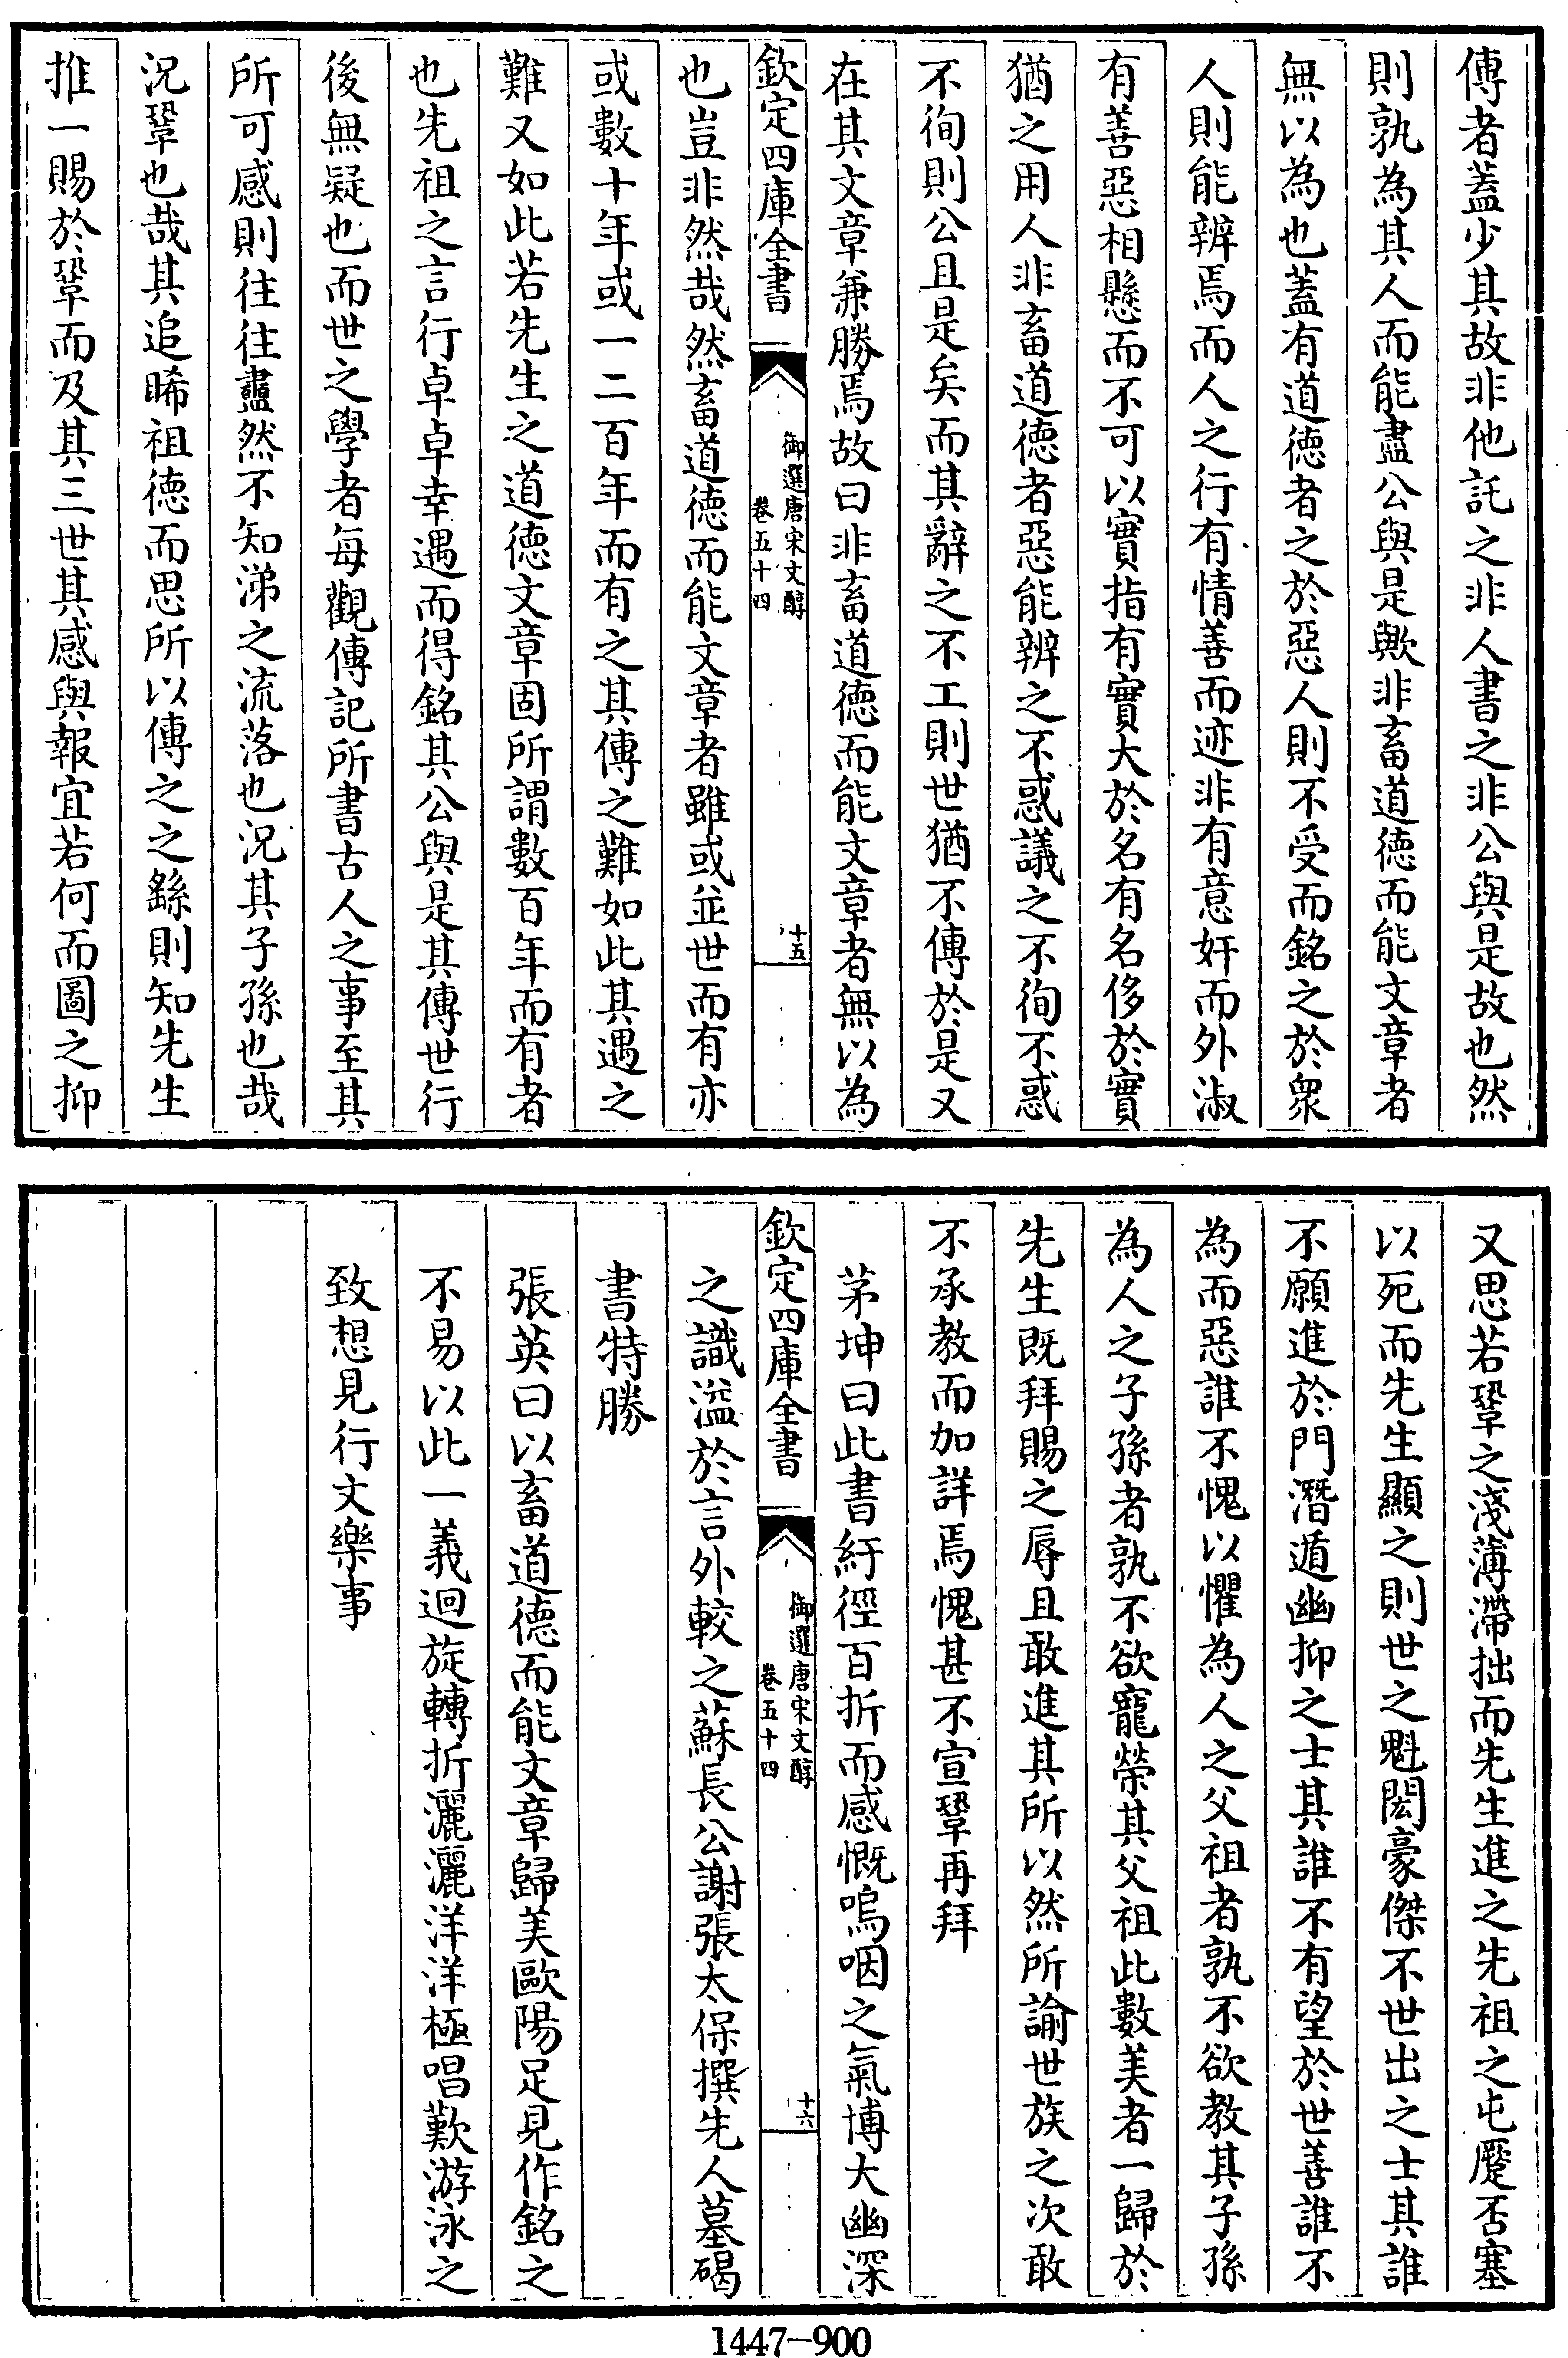 傳者蓋少其故非他託之非人書之非公與是故也然
則孰為其人而能盡公與是歟非畜道徳而能文章者
無以為也蓋有道徳者之於惡人則不受而銘之於衆
人則能辨焉而人之行有情善而迹非有意奸而外淑
有善惡相懸而不可以實指有實大於名有名侈於實
猶之用人非畜道徳者惡能辨之不惑議之不徇不惑
不徇則公且是矣而其辭之不工則世猶不傳於是又
在其文章兼勝焉故曰非畜道徳而能文章者無以為
欽定四庫全書
御選唐宋文醇
卷五十四
十五
也豈非然哉然畜道徳而能文章者雖或並世而有亦
或數十年或一二百年而有之其傳之難如此其遇之
難又如此若先生之道徳文章固所謂數百年而有者
也先祖之言行卓卓幸遇而得銘其公與是其傳世行
後無疑也而世之學者每觀傳記所書古人之事至其
所可感則往往衋然不知涕之流落也況其子孫也哉
況鞏也哉其追睎祖徳而思所以傳之之繇則知先生
推一賜於鞏而及其三世其感與報宜若何而圖之抑
又思若鞏之淺薄滯拙而先生進之先祖之屯蹷否塞
以死而先生顯之則世之魁閎豪傑不世出之士其誰
不願進於門潛遁幽抑之士其誰不有望於世善誰不
為而惡誰不愧以懼為人之父祖者孰不欲教其子孫
為人之子孫者孰不欲寵榮其父祖此數美者一歸於
先生既拜賜之辱且敢進其所以然所諭世族之次敢
不承教而加詳焉愧甚不宣鞏再拜
茅坤曰此書紆徑百折而感慨嗚咽之氣博大幽深
欽定四庫全書
御選唐宋文醇
卷五十四
十六
之識溢於言外較之蘇長公謝張太保撰先人墓碣
書特勝
張英曰以畜道德而能文章歸美歐陽足見作銘之
不易以此一義迴旋轉折灑灑洋洋極唱歎游泳之
致想見行文樂事
1447-900